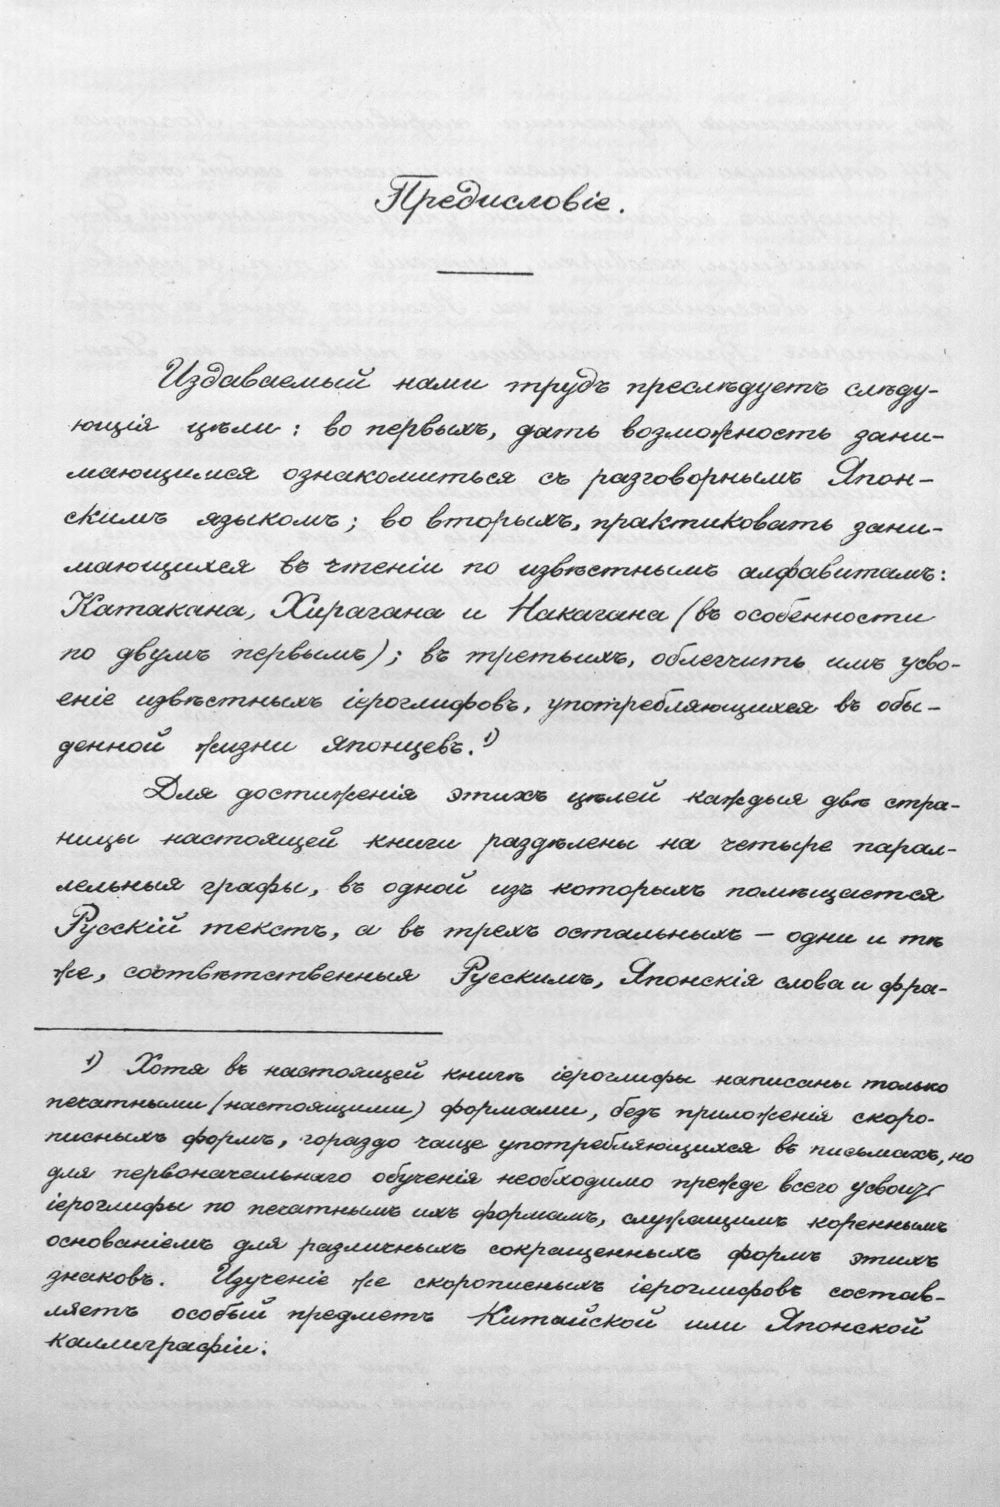 Предисловіе.
Издаваемый нами трудъ преслѣдуетъ слѣду-
ющія цѣли: во первыхъ, дать возможность зани-
мающимся ознакомиться съ разговорнымъ Япон-
скимъ языкомъ; во вторыхъ, практиковать зани-
мающихся въ чтеніи по извѣстнымъ алфавитамъ:
Катакана, Хирагана и Накагана (въ особенности
по двумъ первымъ); въ третьихъ, облегчить имъ усво-
еніе извѣстныхъ іероглифовъ, употребляющихся въ обы-
денной жизни японцевъ.¹)
Для достиженія этихъ цѣлей каждыя двѣ стра-
ницы настоящей книги раздѣлены на четыре парал-
лельныя графы, въ одной изъ которыхъ помѣщается
Русскій текстъ, а въ трехъ остальныхъ — одни и тѣ
же, соотвѣтственныя Русскимъ, Японскія слова и фра-
¹) Хотя въ настоящей книгѣ іероглифы написаны только
печатными (настоящими) формами, безъ приложенія скоро-
писныхъ формъ, гораздо чаще употребляющихся въ письмахъ, но
для первоначальнаго обученія необходимо прежде всего усвоить
іероглифы по печатнымъ ихъ формамъ, служащимъ кореннымъ
основаніемъ для различныхъ сокращенныхъ формъ этихъ
знаковъ. Изученіе же скорописныхъ іероглифовъ состав-
ляетъ особый предметъ Китайской или Японской
каллиграфіи.